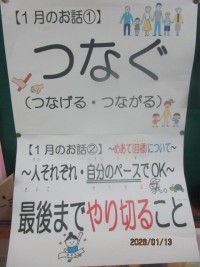 【1月のお話①】
つなぐ
(つなげる・つながる)
【1月のお話②】 ~めあて(目標)について~
~人それぞれ・自分のペースでOK~
最後までやり切ること
2026/01/13